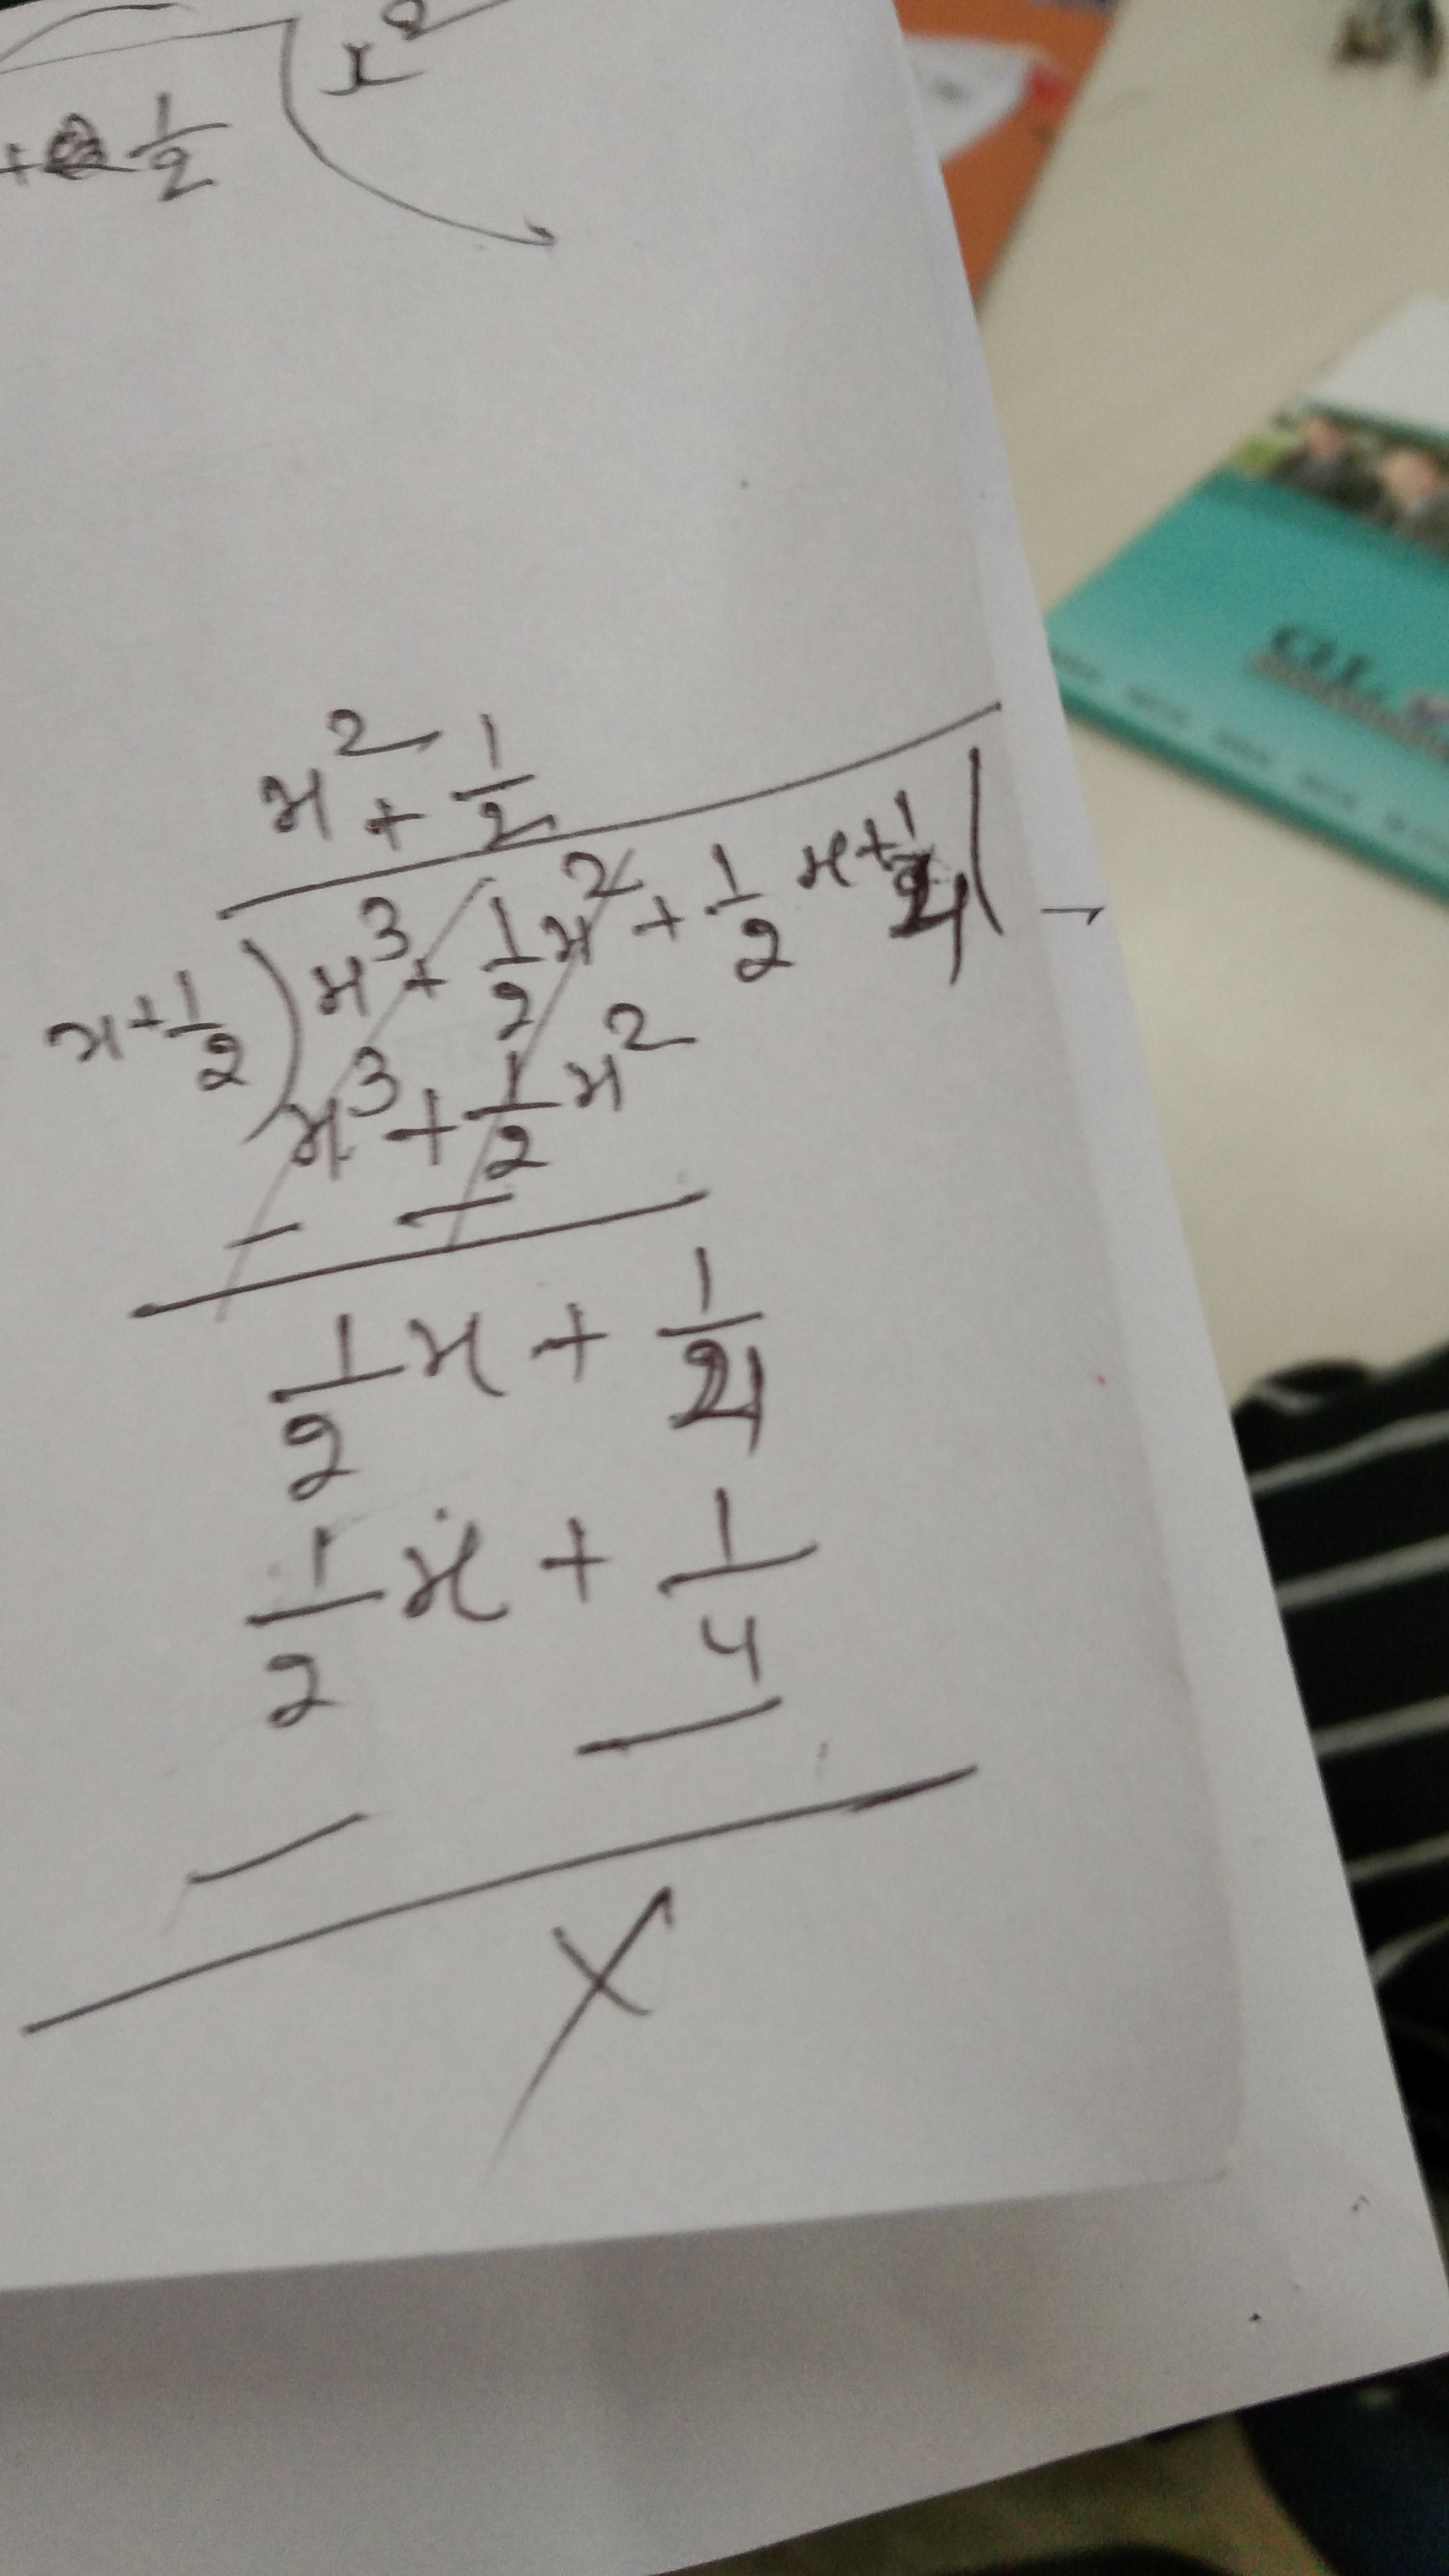 x²
+ 1/2
x² + 1/2
x + 1/2 ) x³ + 1/2 x² + 1/2 x + 1/4 ( -
x³ + 1/2 x²
- -
1/2 x + 1/4
1/2 x + 1/4
- -
X